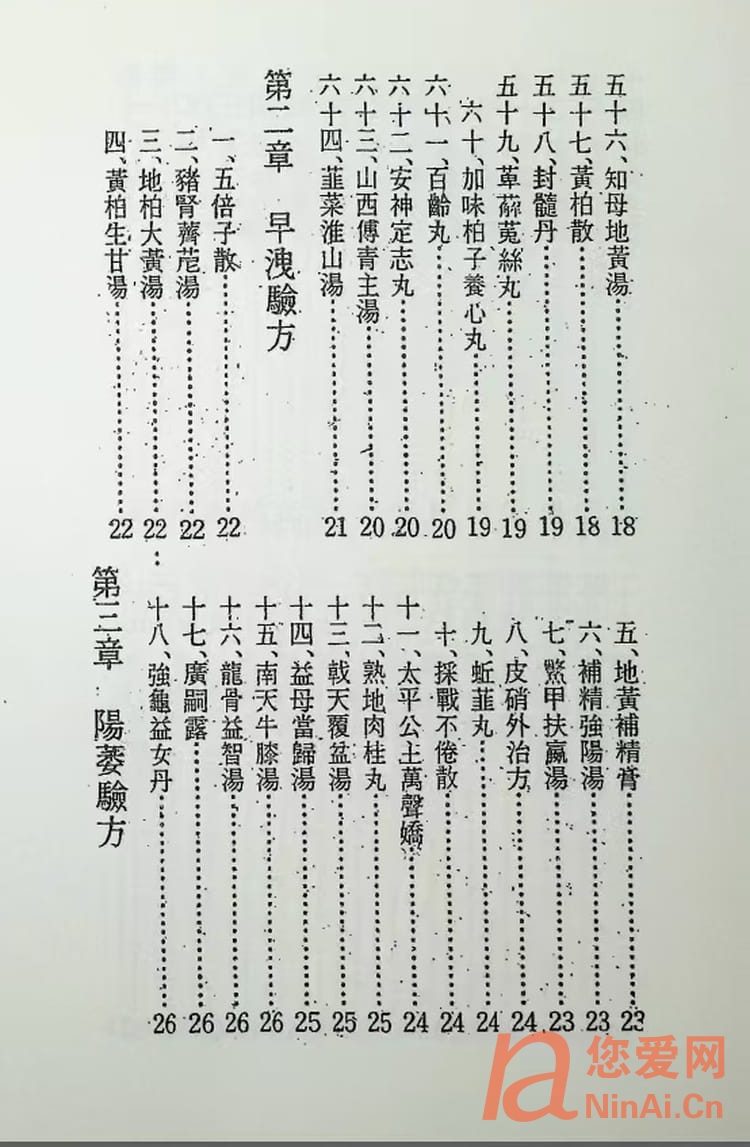 五十六、知母地黃湯……18
五十七、黃柏散……18
五十八、封髓丹……19
五十九、萆薢菟絲丸……19
六十、加味柏子養心丸……19
六十一、百齡丸……20
六十二、安神定志丸……20
六十三、山西傅青主湯……20
六十四、韮菜淮山湯……21
第二章 早洩驗方
一、五倍子散……22
二、豬腎薺苨湯……22
三、地柏大黃湯……22
四、黃柏生甘湯……22
五、地黃補精膏……23
六、補精強陽湯……23
七、鱉甲扶羸湯……23
八、皮硝外治方……24
九、蚯韮丸……24
十、採戰不倦散……24
十一、太平公主萬聲嬌……24
十二、熟地肉桂丸……25
十三、戟天覆盆湯……25
十四、益母當歸湯……25
十五、南天牛膝湯……26
十六、龍骨益智湯……26
十七、廣嗣露……26
十八、強龜益女丹……26
第三章 陽萎驗方
您爱网
NinAi.Cn